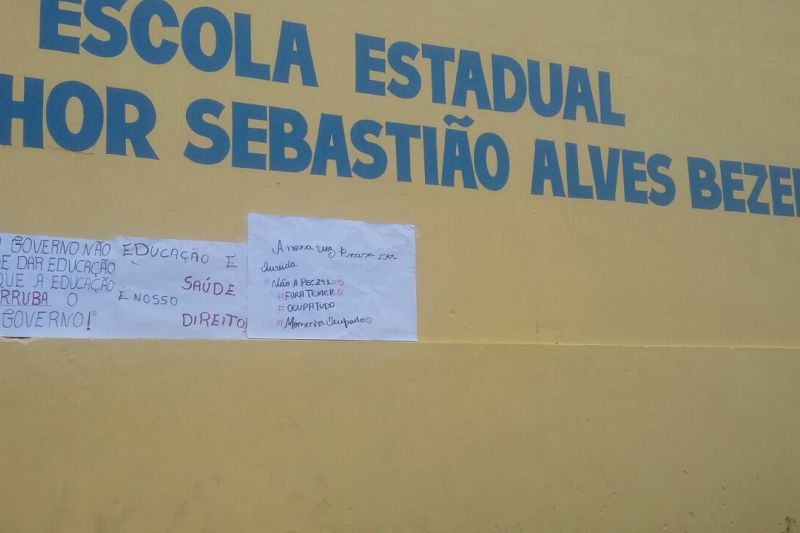 ESCOLA ESTADUAL
HOR SEBASTIÃO ALVES BEZE
GOVERNO NÃO
E DAR EDUCAÇÃO
QUE A EDUCAÇÃO
RRUBA O
GOVERNO!
EDUCAÇÃO E
SAÚDE
É NOSSO
DIREITO!
A nossa voz Precisa ser
#NÃO A PEC241
#FORA TEMER
#OCUPATUDO
#Momenvaocupado